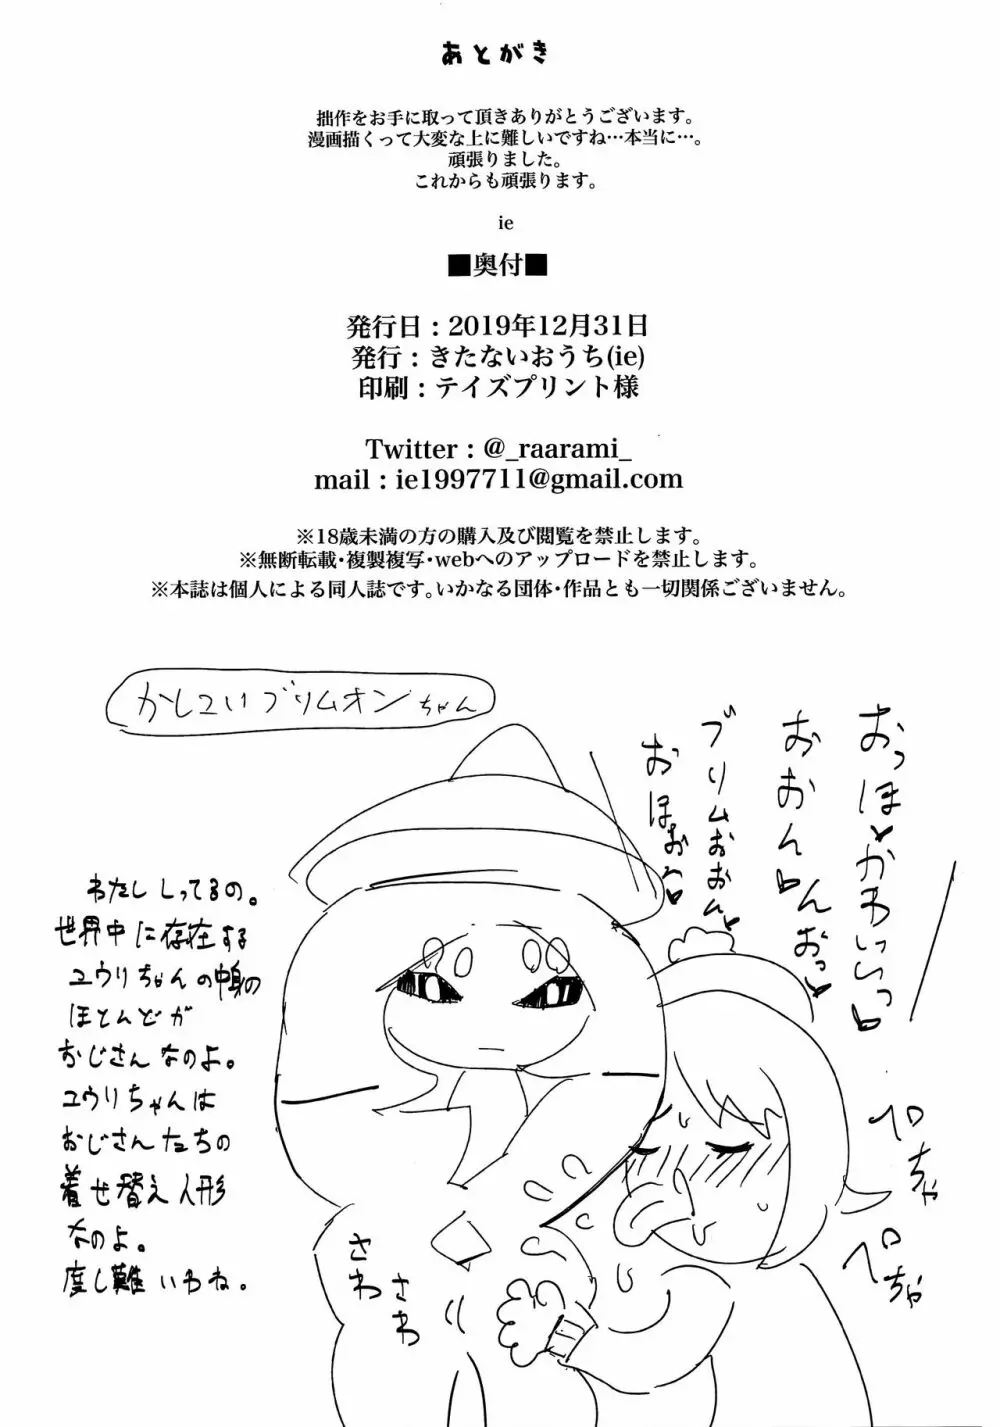 あとがき
拙作をお手に取って頂きありがとうございます。
漫画描くって大変な上に難しいですね…本当に…。
頑張りました。
これからも頑張ります。
ie
■奥付■
発行日：2019年12月31日
発行：きたないおうち(ie)
印刷：テイズプリント様
Twitter：@_raarami_
mail：ie1997711@gmail.com
※18歳未満の方の購入及び閲覧を禁止します。
※無断転載・複製複写・webへのアップロードを禁止します。
※本誌は個人による同人誌です。いかなる団体・作品とも一切関係ございません。
かしこいブリムオンちゃん
おっほ♥かわいっいっ♥
おおん♥んおっ♥
ブリムおおん♥
おほおっ♥
わたししってるの。
世界中に存在する
ユウリちゃんの中身の
ほとんどが
おじさんなのよ。
ユウリちゃんは
おじさんたちの
着せ替え人形
なのよ。
度し難いわね。
さわ
さわ
ペロ
ちゃ
ペロ
ちゃ